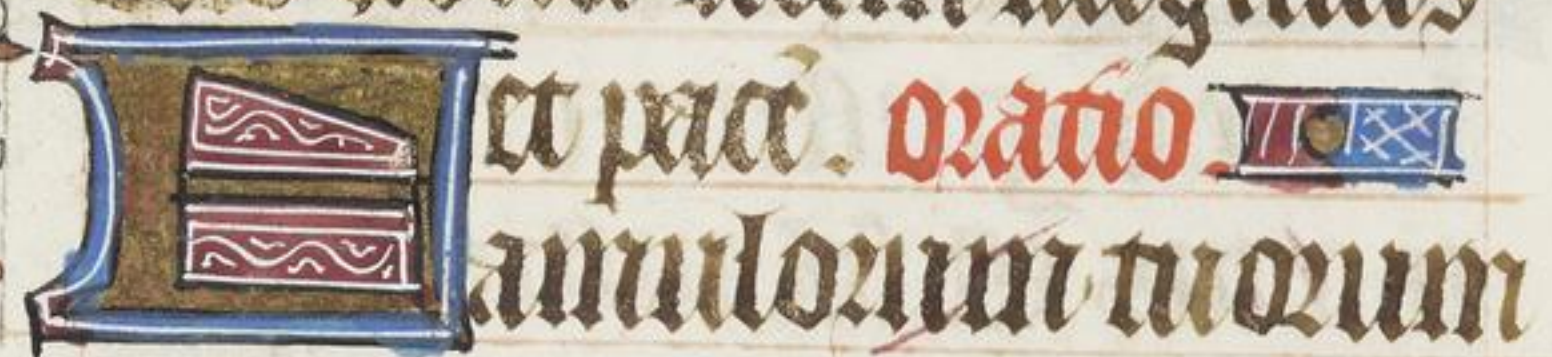 et pacē. oratio.
Famulorum tuorum